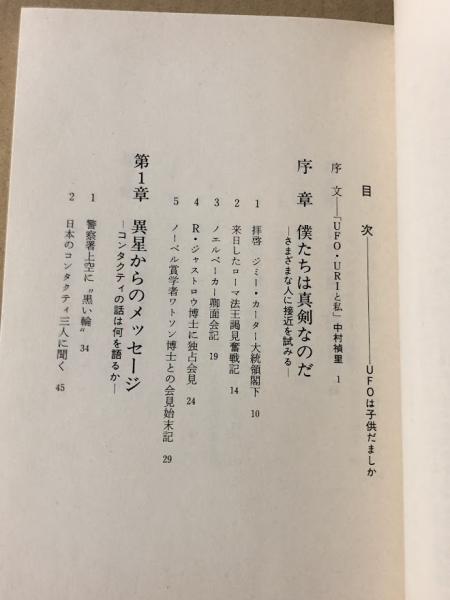 目次――UFOは子供だましか
序文―「UFO・URIと私」中村禎里 1
序章 僕たちは真剣なのだ
―さまざまな人に接近を試みる―
1 拝啓 ジミー・カーター大統領閣下 10
2 来日したローマ法王謁見奮戦記 14
3 ノエルベーカー卿面会記 19
4 R・ジャストロウ博士に独占会見 24
5 ノーベル賞学者ワトソン博士との会見始末記 29
第1章 異星からのメッセージ
―コンタクティの話は何を語るか―
1 警察署上空に〝黒い輪〟 34
2 日本のコンタクティ三人に聞く 45